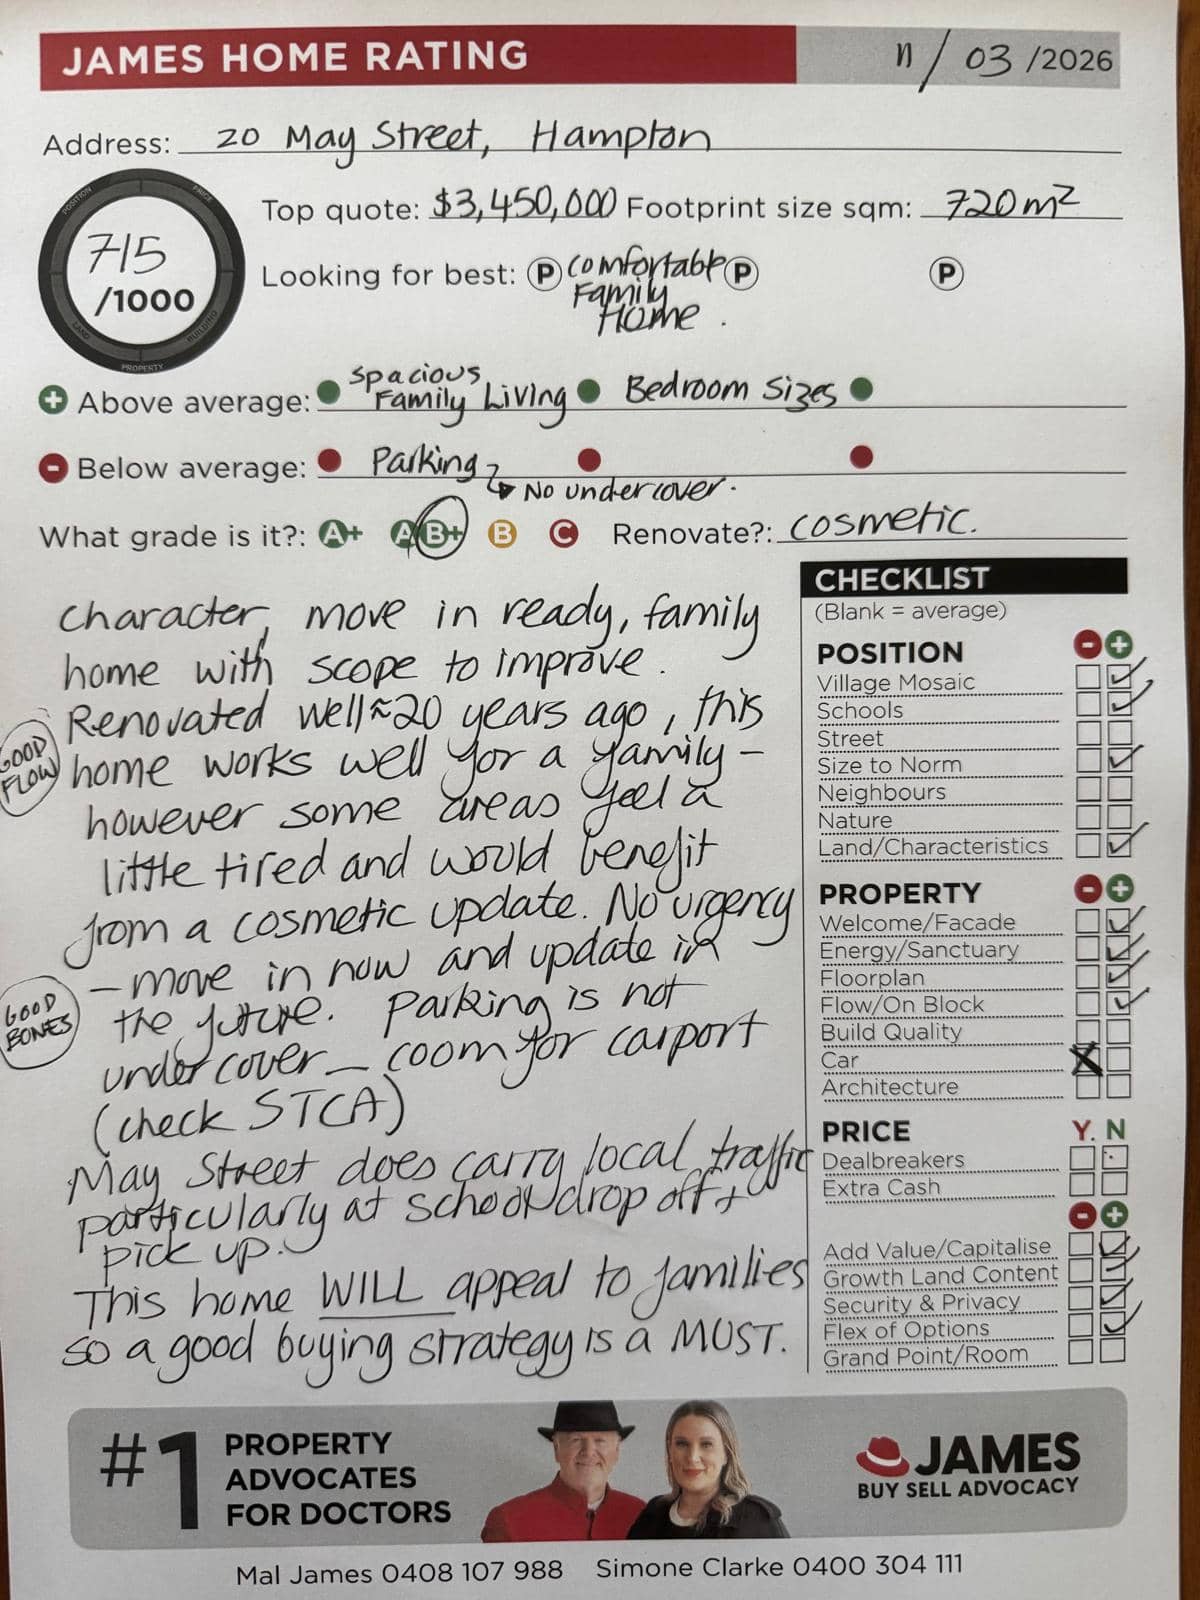 JAMES HOME RATING
11/03/2026
Address: 20 May Street, Hampton
POSITION PRICE
715
/1000
LAND BUILDING
PROPERTY
Top quote: $3,450,000 Footprint size sqm: 720m²
Looking for best: P comfortable P P
Family
Home.
+ Above average: Spacious
Family Living Bedroom Sizes
- Below average: Parking
No undercover.
What grade is it?: A+ A B+ B C Renovate?: cosmetic.
character, move in ready, family
home with scope to improve.
Renovated well ≈20 years ago, this
GOOD
FLOW
home works well for a family –
however some areas feel a
little tired and would benefit
from a cosmetic update. No urgency
– move in now and update in
the future. Parking is not
GOOD
BONES
under cover – room for carport
(check STCA)
May Street does carry local traffic
particularly at school drop off +
pick up.
This home WILL appeal to families
so a good buying strategy is a MUST.
CHECKLIST
(Blank = average)
POSITION - +
Village Mosaic
Schools
Street
Size to Norm
Neighbours
Nature
Land/Characteristics
PROPERTY - +
Welcome/Facade
Energy/Sanctuary
Floorplan
Flow/On Block
Build Quality
Car
Architecture
PRICE Y. N
Dealbreakers
Extra Cash
- +
Add Value/Capitalise
Growth Land Content
Security & Privacy
Flex of Options
Grand Point/Room
#1 PROPERTY
ADVOCATES
FOR DOCTORS
JAMES
BUY SELL ADVOCACY
Mal James 0408 107 988 Simone Clarke 0400 304 111